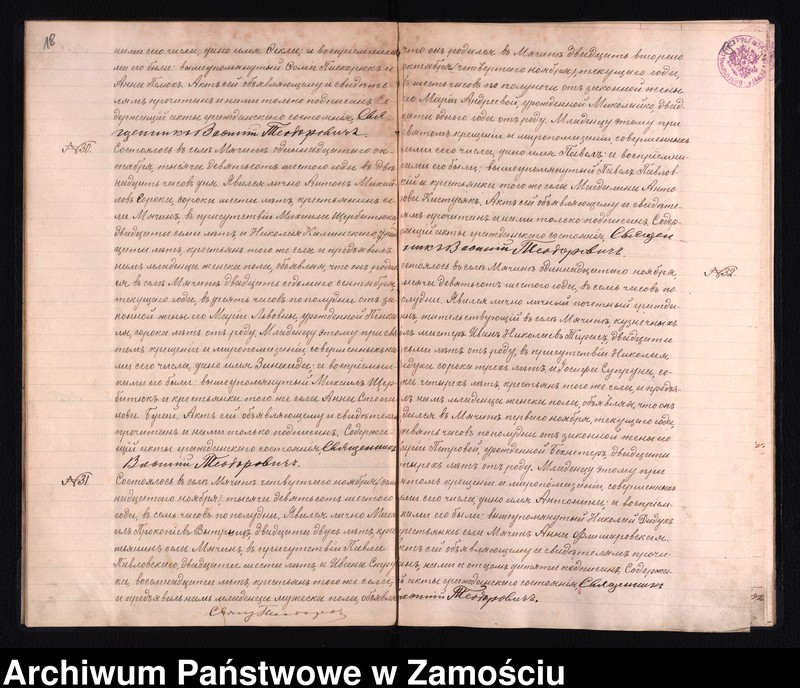 18
ними сего числа, дано имя Фекла; и восприемника
ми его были: вышеупомянутый Сомъ Пискорскъ и
Анна Полюхъ. Актъ сей объявляющему и свидѣте
лямъ прочитанъ и нами только подписанъ. Со
держащій акты гражданскаго состоянія, Свя
щенникъ Василій Теодоровичъ.
№30.
Состоялось въ селѣ Мячинъ одиннадцатаго ок
тября, тысяча девятьсотъ шестого года, въ двѣ
надцать часовъ дня. Явился лично Антонъ Михай
ловъ Сорока, сорока шести лѣтъ, крестьянинъ се
ла Мячинъ, въ присутствіи Михаила Щербатюка
двадцати семи лѣтъ и Николая Калинскаго, трид
цати лѣтъ, крестьянъ того же села и предъявилъ
намъ младенца женска пола, объявляя, что онъ родил
ся въ Мячинъ двадцать седьмого сентября,
текущаго года, въ десять часовъ по полудни, отъ за
конной жены его Маріи Львовны, урожденной
сорока лѣтъ отъ роду. Младенцу этому при свя
томъ крещеніи и миропомазаніи, совершенныхъ
ми сего числа, дано имя Зинаида; и восприемни
ками его были: вышеупомянутый Михаилъ Щер
батюкъ и крестьянка того же села Анна Степа
нова Бугай. Актъ сей объявляющему и свидѣтелямъ
прочитанъ и нами только подписанъ. Содержа
щій акты гражданскаго состоянія, Священникъ
Василій Теодоровичъ.
№31.
Состоялось въ селѣ Мячинъ четвертаго ноября,
надцатаго ноября, тысяча девятьсотъ шестого
года, въ семь часовъ по полудни. Явился лично Миха
илъ Прокопіевъ двадцати двухъ лѣтъ, крес
тьянинъ села Мячинъ, въ присутствіи Павла
Павловскаго, двадцати шести лѣтъ и Ивана
ка, восьмидесяти лѣтъ, крестьянъ того же села,
и предъявилъ намъ младенца мужеска пола, объявляя
что онъ родился въ Мячинъ двадцать второго
октября/четвертаго ноября, текущаго года,
въ шесть часовъ по полуночи отъ законной жены
его Маріи Андреевой, урожденной двад
цати одного года отъ роду. Младенцу этому при
святомъ крещеніи и миропомазаніи, совершенныхъ
нами сего числа, дано имя Павелъ; и восприемни
ками его были: вышеупомянутый Павелъ Павлов
скій и крестьянка того же села Анто
нова Актъ сей объявляющему и свидѣте
лямъ прочитанъ и нами только подписанъ. Содер
жащій акты гражданскаго состоянія, Священ
никъ Василій Теодоровичъ.
№32
Состоялось въ селѣ Мячинъ одиннадцатаго ноября,
тысяча девятьсотъ шестого года, въ семь часовъ по
полудни. Явился лично личный почетный гражда
нинъ, жительствующій въ селѣ Мячинъ, кузнечныхъ
дѣлъ мастеръ Иванъ Николаевъ двадцати
семи лѣтъ отъ роду, въ присутствіи Николая
Дидука сорока трехъ лѣтъ, и Іосифа Супруна, со
рока четырехъ лѣтъ, крестьянъ того же села, и предъя
вилъ намъ младенца женска пола, объявляя, что онъ
родился въ Мячинъ перваго ноября, текущаго года,
девять часовъ по полудни отъ законной жены его
Маріи Петровой, урожденной двадцати
четырехъ лѣтъ отъ роду. Младенцу этому при
святомъ крещеніи и миропомазаніи, совершенныхъ
нами сего числа, дано имя Антонина; и восприем
никами его были: вышеупомянутый Николай Дидукъ
крестьянка села Мячинъ Анна
Актъ сей объявляющему и свидѣтелямъ прочи
танъ, нами и отцомъ дитяти подписанъ. Содержа
щій акты гражданскаго состоянія, Священникъ
Василій Теодоровичъ.
Archiwum Państwowe w Zamościu